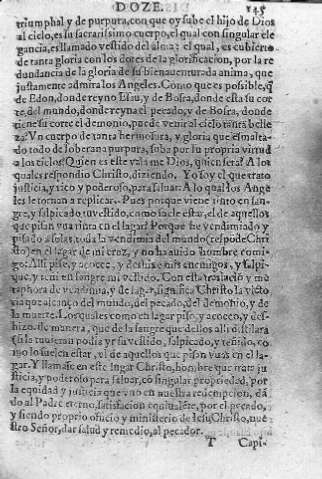 DOZE. 145
triumphal y de purpura, con que oy sube el hijo de Dios
al cielo, es su sacratissimo cuerpo, el qual con singular ele
gancia, es llamado vestido del alma: el qual, es cubierto
de tanta gloria con los dotes de la glorificacion, por la re
dundancia de la gloria de su bienauenturada anima, que
justamente admira los Angeles. Como que es possible, q̃
de Edon, donde reyno Esau, y de Bosra, donde esta su cor
te, del mundo, donde reyna el pecado, y de Bosra, donde
tiene su corte el demonio, puede venir al cielo tanta belle
za? Vn cuerpo de tanta hermosura, y gloria que esmalta-
do todo de soberana purpura, suba por su propria virtud
a los cielos? Quien es este vala me Dios, quien sera? A los
quales respondio Christo, diziendo. Yo soy el que trato
justicia, y rico y poderoso, para saluar. A lo qual los Ange
les le tornan a replicar. Pues porque viene tinto en san-
gre, y salpicado tu vestido, como suele estar, el de aquellos
que pisan vua tinta en el lagar? Porque he vendimiado y
pisado a solas, toda la vendimia del mundo (respõde Chri
sto) en el lagar de mi cruz, y no ha auido hombre comi-
go: Alli pise, y acocee, y deshize mis enemigos, y salpi-
que, y teñi en sangre mi vestido. Con esta traslacio y me
taphora de vendimia, y de lagar, significa Christo la victo
ria que alcanço del mundo, del pecado, del demonio, y de
la muerte. Los quales como en lagar piso, y acoceo, y des-
hizo, de manera, que de la sangre que dellos alli distilara
(si la tuuieran podia yr su vestido, salpicado, y teñido, co
mo lo suelen estar, el de aquellos que pisan vuas en el la-
gar. Y llamase en este lugar Christo, hombre que trata ju
sticia, y poderoso para saluar, cõ singular propriedad, por
la equidad y justicia que vso en nuestra redempcion, dã
do al Padre eterno, satisfacion equiualẽte, por el pecado,
y siendo proprio oficio y ministerio de Iesu Christo, nue
stro Señor, dar salud y remedio, al pecador.
T Capi-